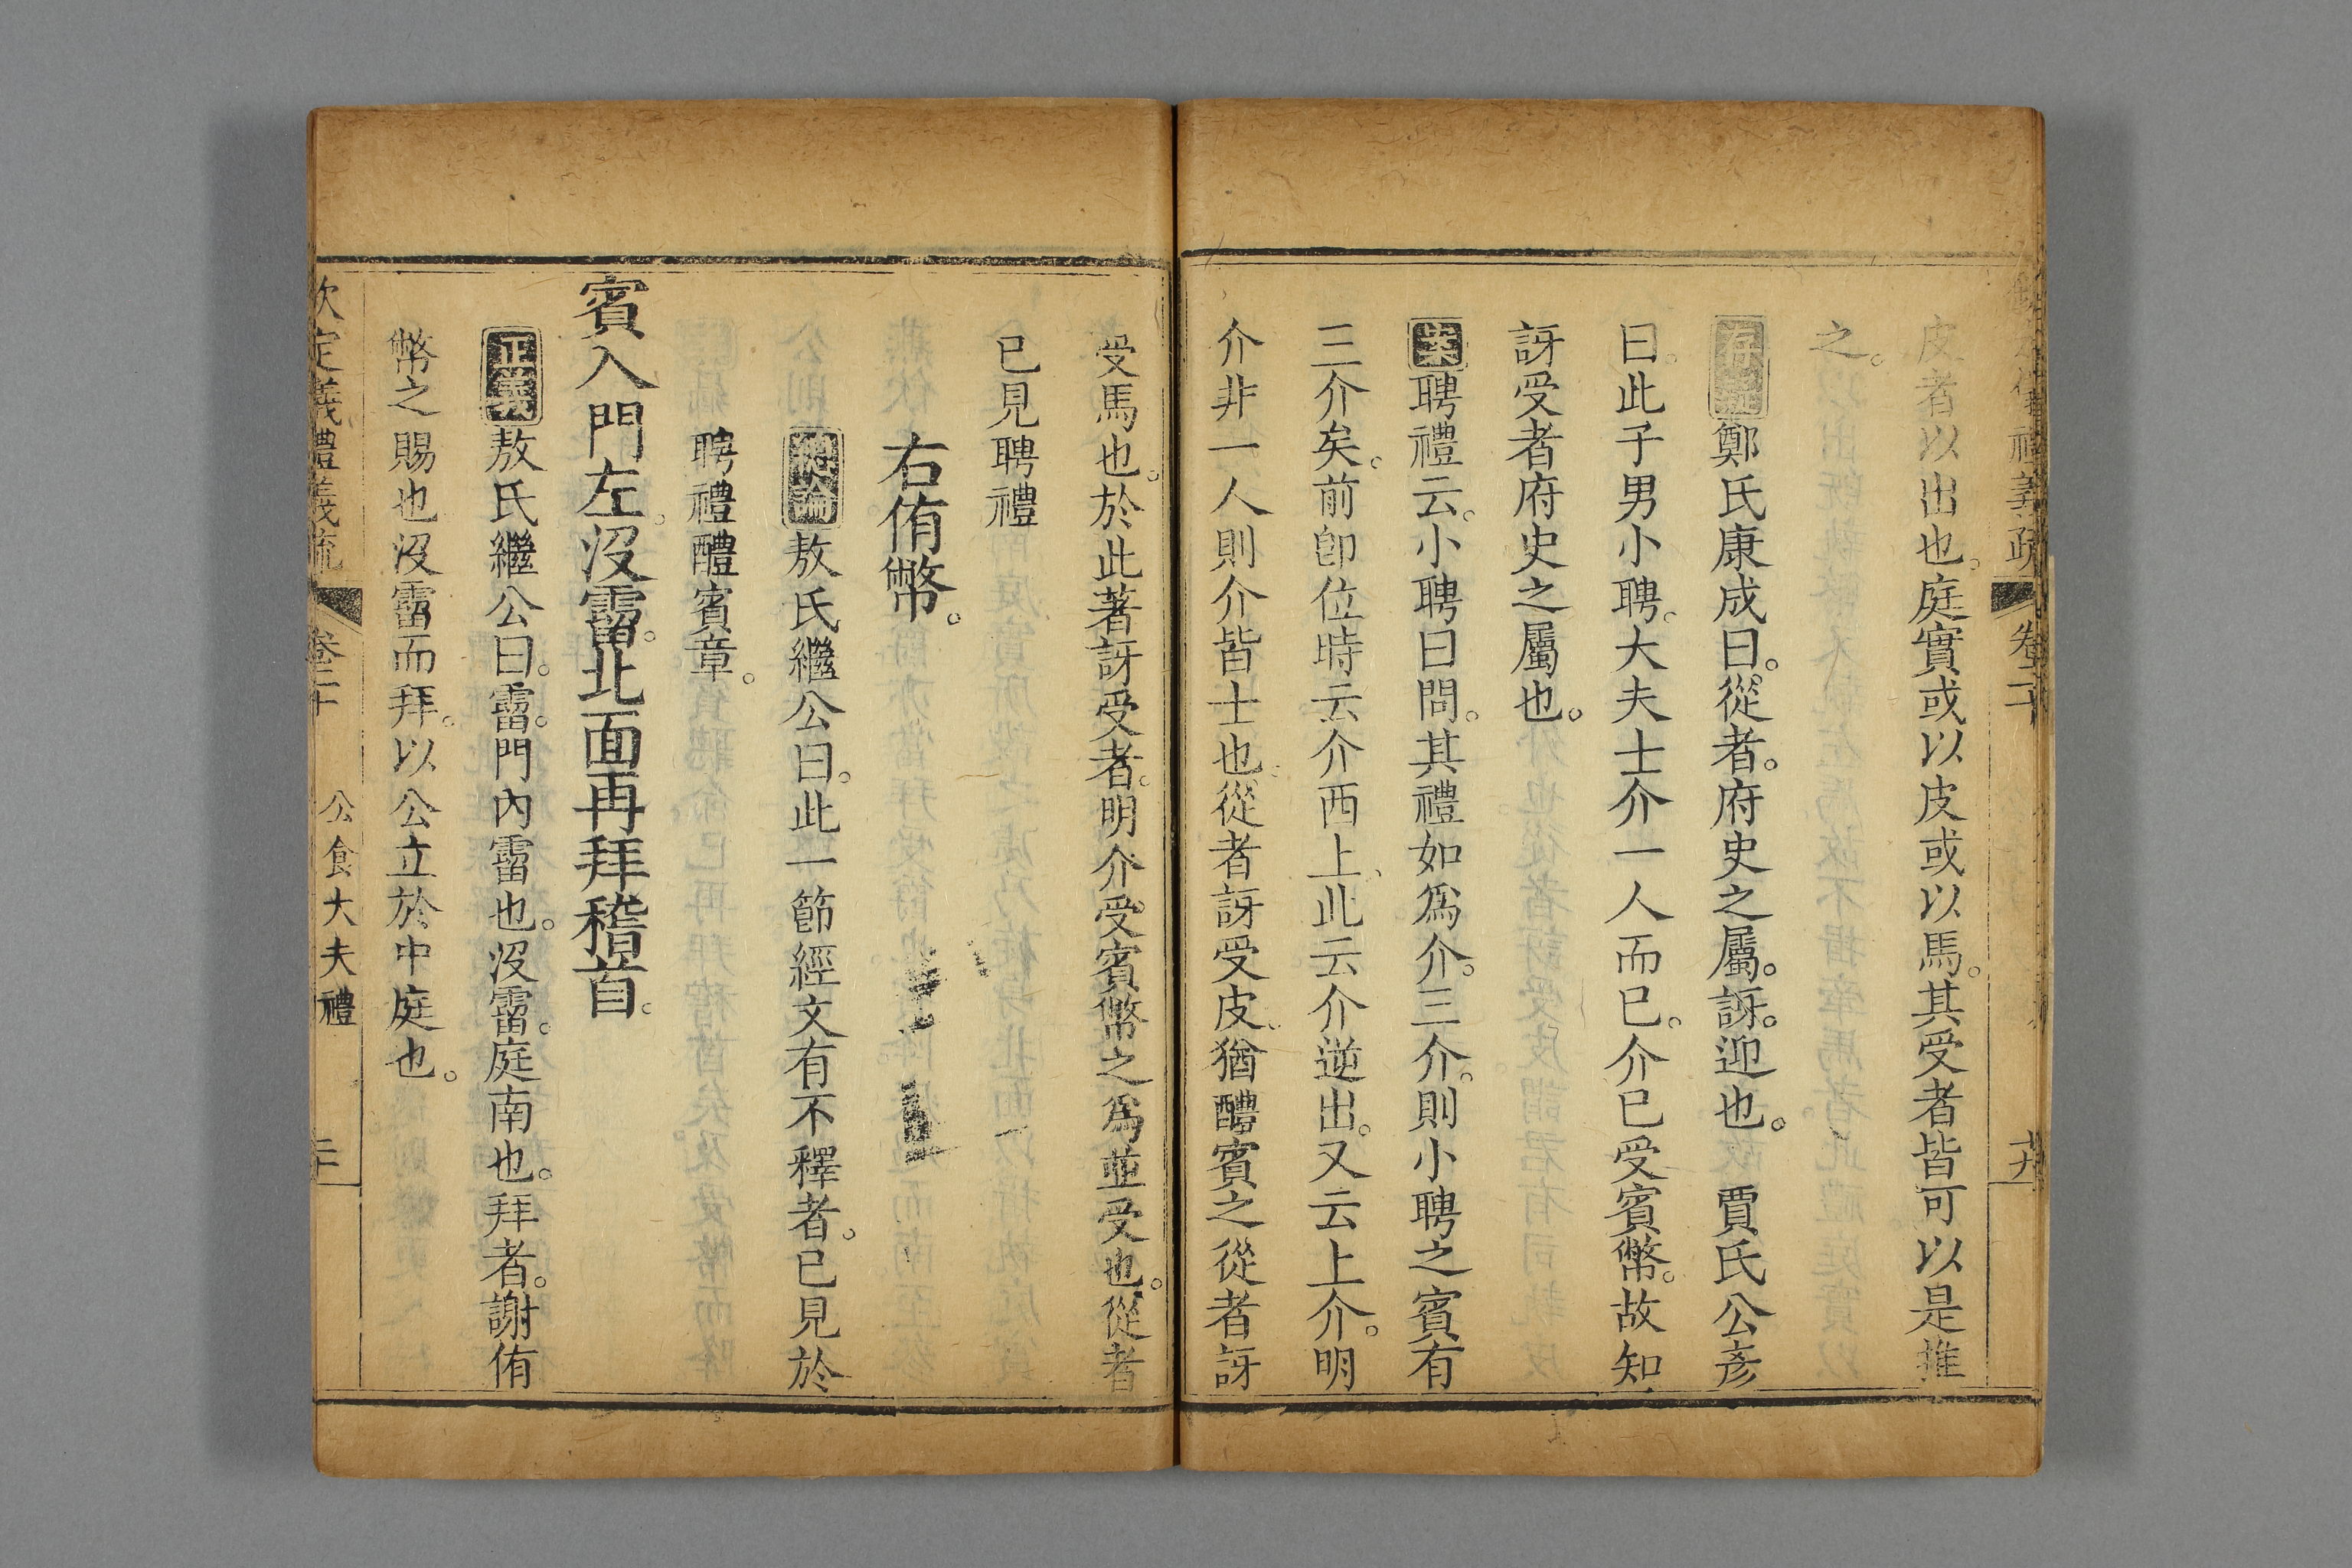 欽定儀禮義疏 卷二十 十九
皮者以出也。庭實或以皮或以馬。其受者皆可以是推
之。
存疑鄭氏康成曰。從者。府史之屬。訝。迎也。 賈氏公彥
曰。此子男小聘。大夫士介一人而已。介已受賓幣。故知
訝受者府史之屬也。
案聘禮云。小聘曰問。其禮如為介。三介。則小聘之賓有
三介矣。前卽位時云介西上、此云介逆出。又云上介。明
介非一人則介皆士也。從者訝受皮、猶醴賓之從者訝
受馬也。於此著訝受者。明介受賓幣之為並受也。從者
已見聘禮
右侑幣。
總論敖氏繼公曰。此一節經文有不釋者。已見於
聘禮醴賓章。
賓入門左。沒霤。北面再拜稽首。
正義敖氏繼公曰。霤。門內霤也。沒霤。庭南也。拜者。謝侑
幣之賜也沒霤而拜。以公立於中庭也。
欽定儀禮義疏 卷二十 公食大夫禮 二十